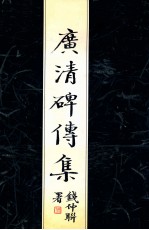 廣清碑傳集
錢仲聯
署